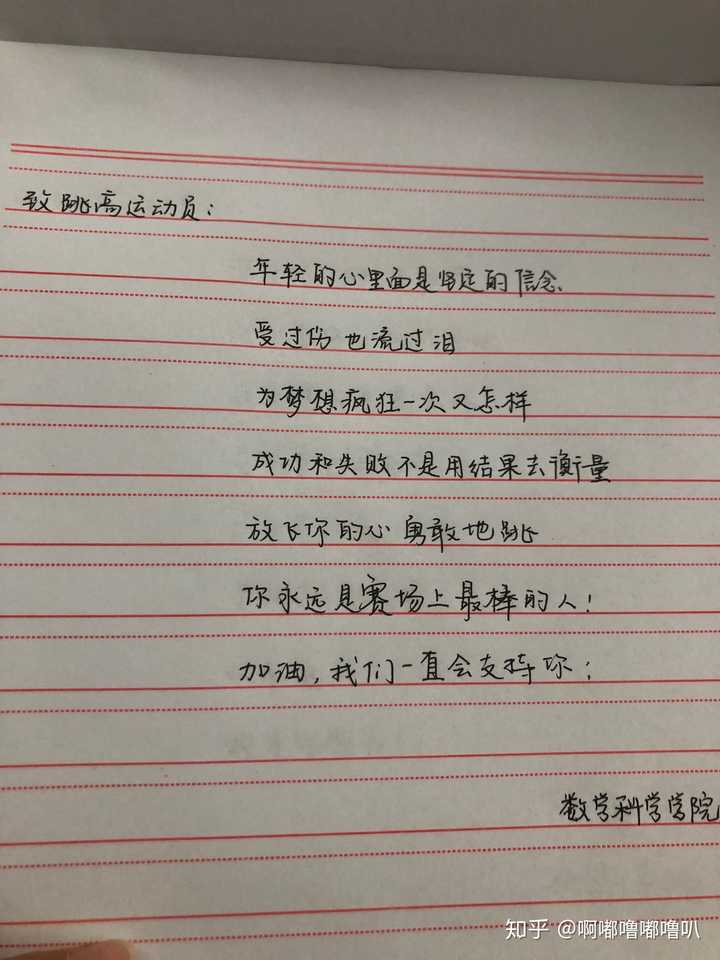 致跳高运动员：
年轻的心里面是坚定的信念、
受过伤也流过泪
为梦想疯狂一次又怎样
成功和失败不是用结果去衡量
放飞你的心勇敢地跳
你永远是赛场上最棒的人！
加油，我们一直会支持你！
数学科学学院
知乎 @啊嘟噜嘟噜叭